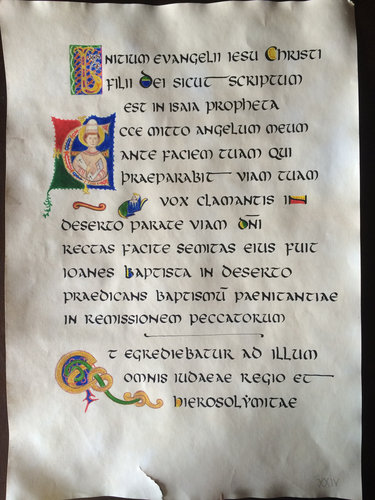 INITIUM EVANGELII IESU CHRISTI
FILII DEI SICUT SCRIPTUM
EST IN ISAIA PROPHETA
ECCE MITTO ANGELUM MEUM
ANTE FACIEM TUAM QUI
PRAEPARABIT VIAM TUAM
VOX CLAMANTIS IN
DESERTO PARATE VIAM DN̄I
RECTAS FACITE SEMITAS EIUS FUIT
IOANES BAPTISTA IN DESERTO
PRAEDICANS BAPTISMŪ PAENITANTIAE
IN REMISSIONEM PECCATORUM
ET EGREDIEBATUR AD ILLUM
OMNIS IUDAEAE REGIO ET
HIEROSOLẎMITAE
XXIV